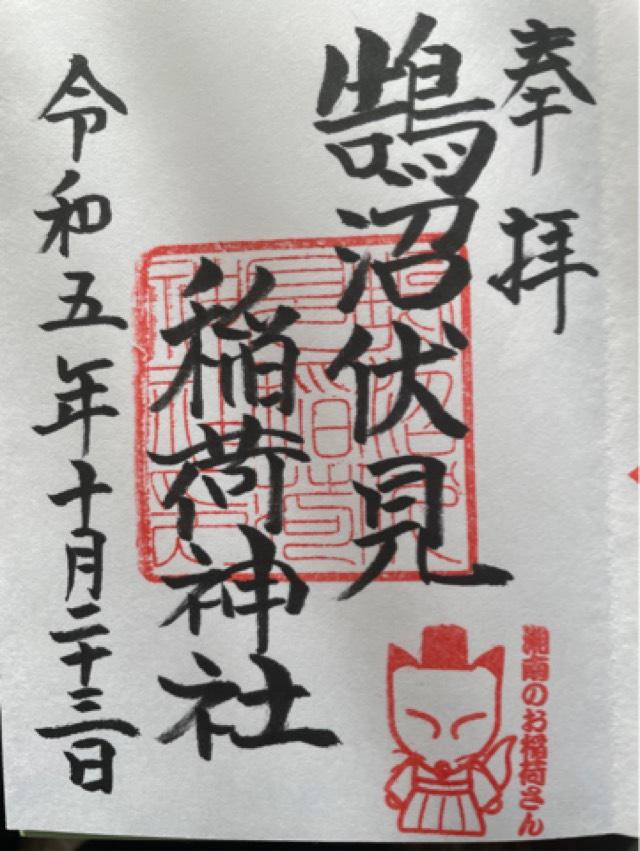 奉拝
鵠沼伏見
稲荷神社
令和五年十月二十三日
湘南のお稲荷さん